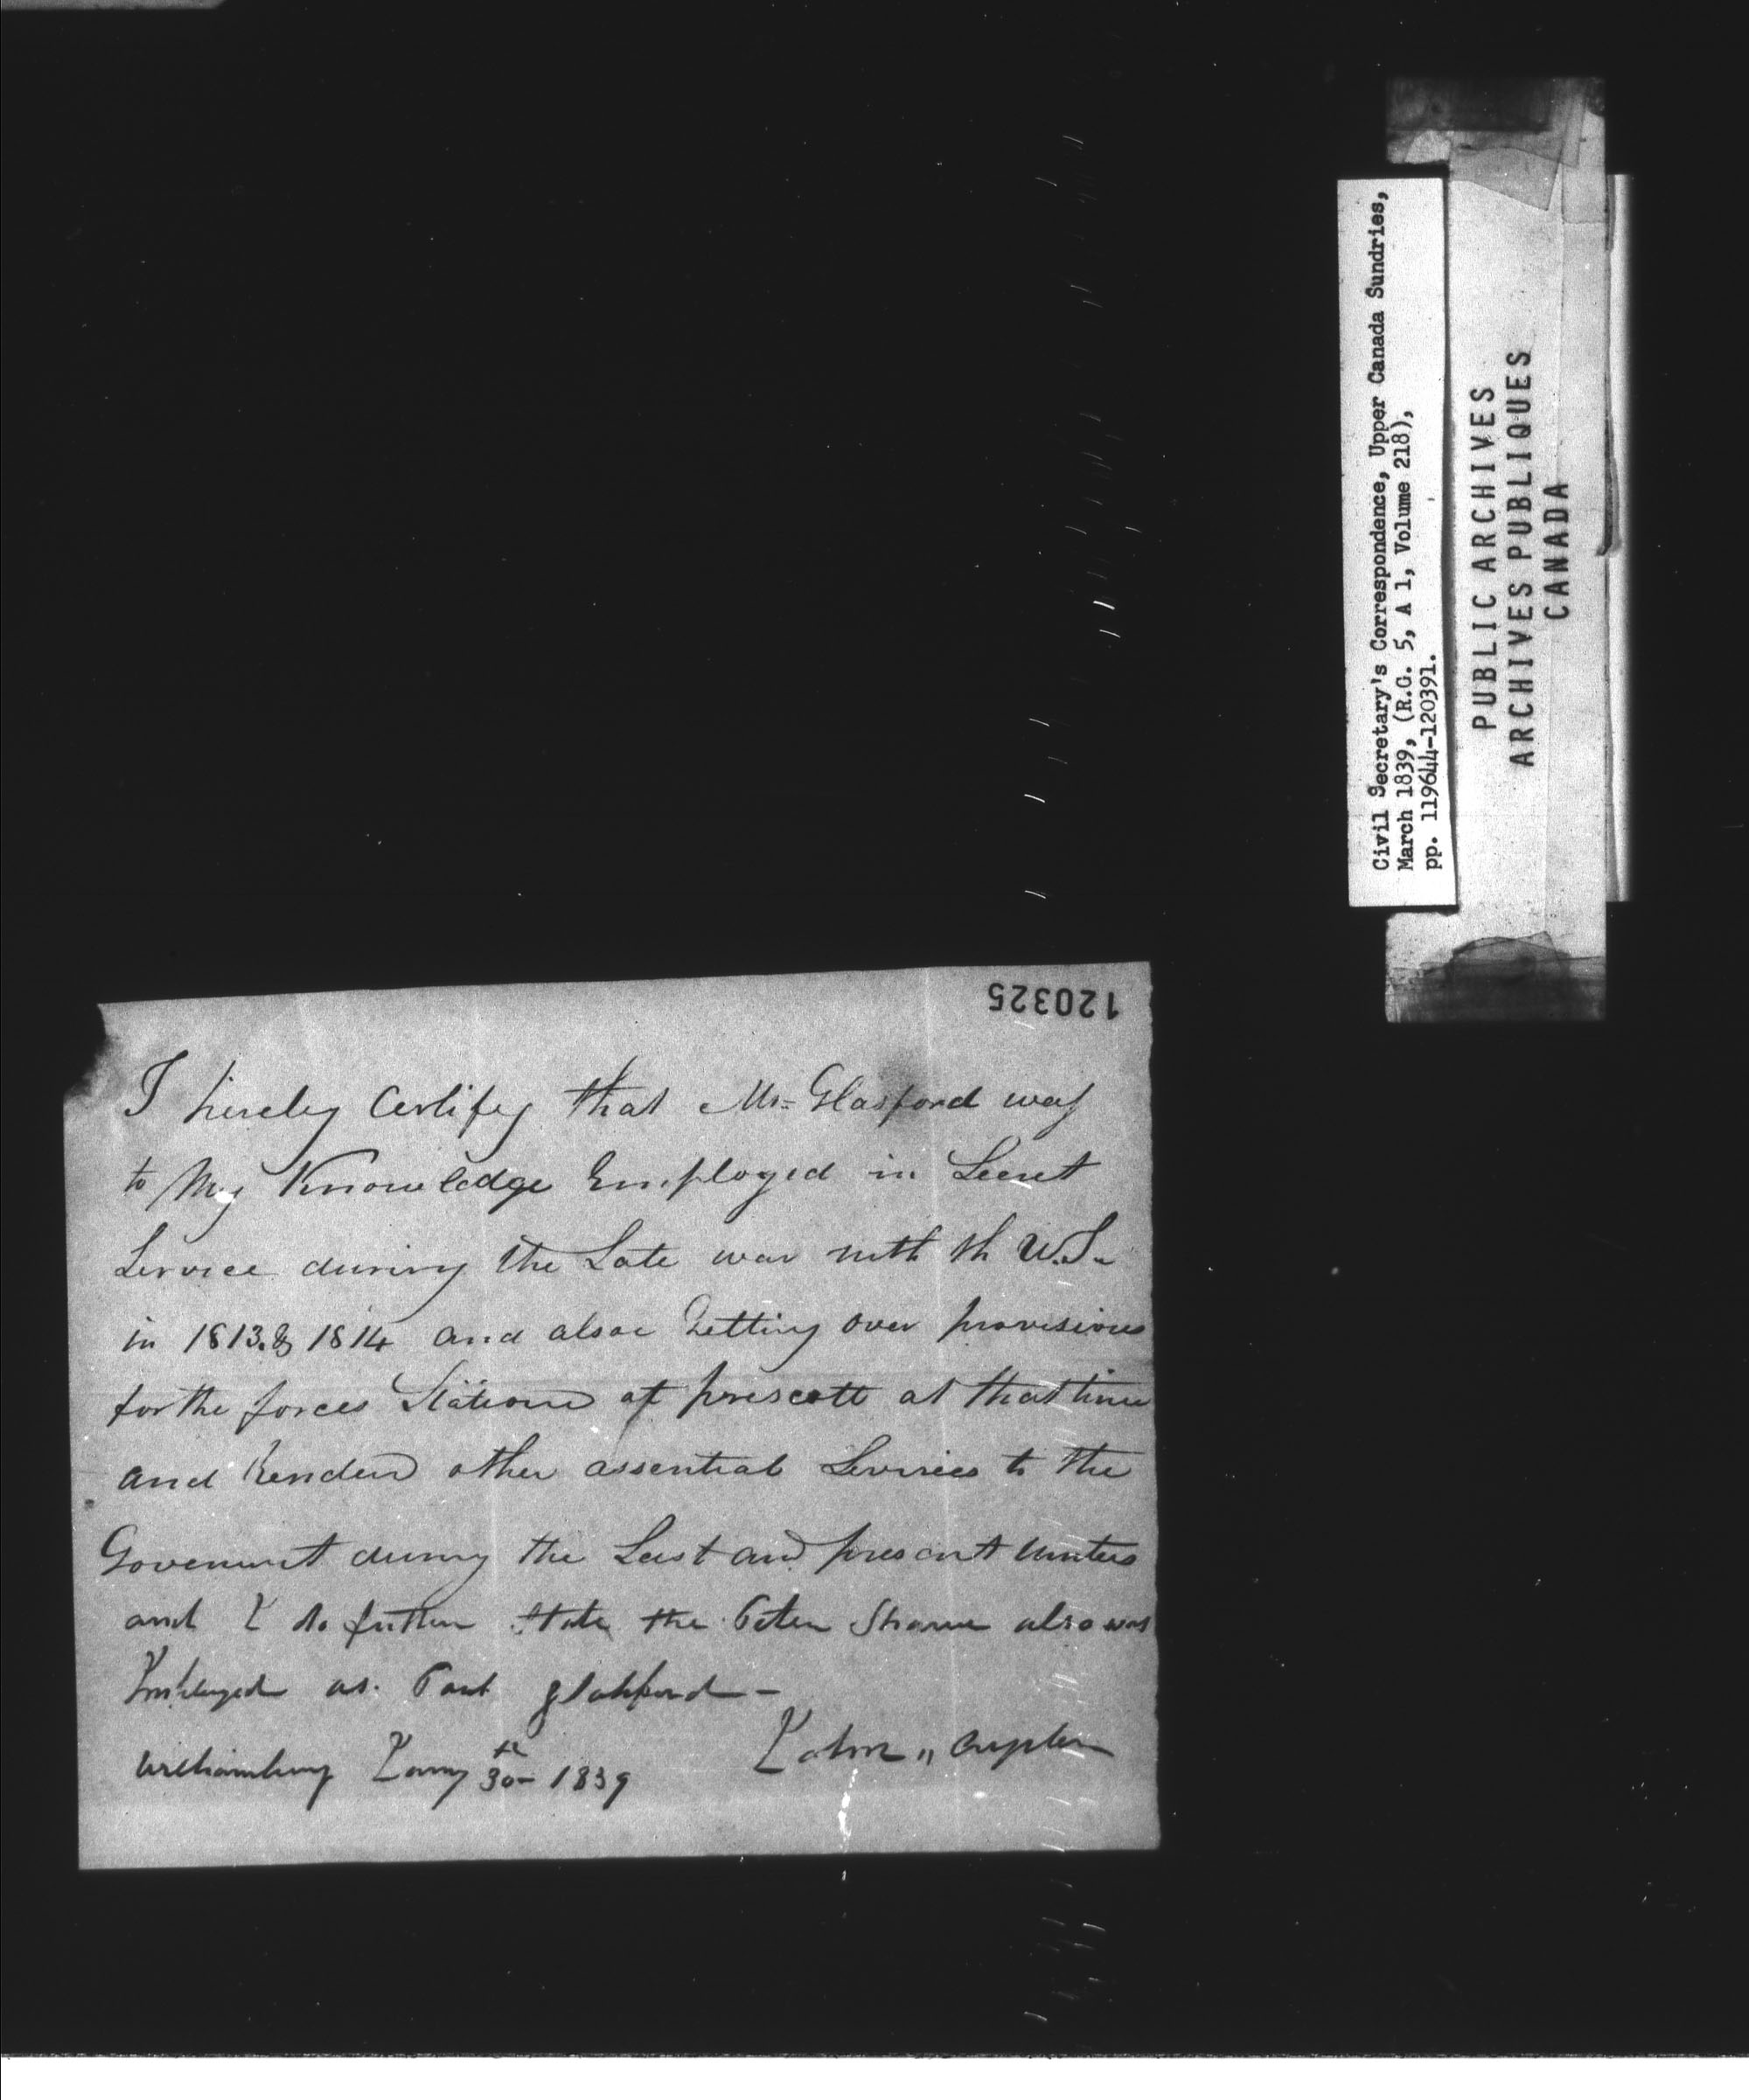 Civil Secretary's Correspondence, Upper Canada Sundries,
March 1839, (R.G. 5, A 1, Volume 218),
pp. 119644-120391.
PUBLIC ARCHIVES
ARCHIVES PUBLIQUES
CANADA
120325
I hereby Certify that Mr= Glasford was
to My Knowledge Employed in Secret
Service during the Late war with th U.S.
in 1813 & 1814 and alsoe Getting over provisions
for the forces Statione at prescott at that time
and Render other assential Services to the
Goverment during the Last and present winters
and I do further State the Peter Shaver also was
Imployed as Paul glassford -
Williamsburg Jany 30th 1839
John " Crysler